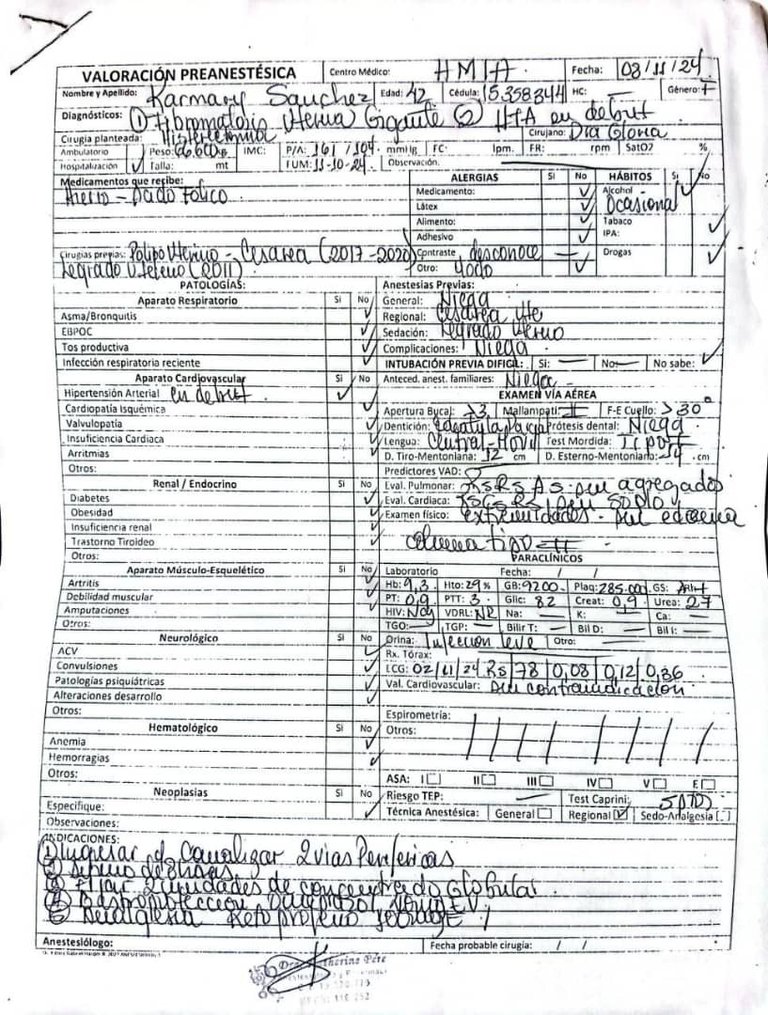 VALORACIÓN PREANESTÉSICA Centro Médico: HMIA Fecha: 08/11/24
Nombre y Apellido: Karmary Sanchez Edad: 42 Cédula: 15358344 HC: — Género: F
Diagnósticos: ① Fibromatosis Uterina Gigante ② HTA en debut
Cirugía planteada: Histerectomia Cirujano: Dra Gloria
Ambulatorio Peso: 66.600 Kg IMC: P/A: 161/104 mmHg FC: lpm. FR: rpm SatO2 %
Hospitalización ✓ Talla: mt FUM: 11-10-24 Observación.
Medicamentos que recibe: ALERGIAS Si No HÁBITOS Si No
Hierro - Acido Folico Medicamento: ✓ Alcohol ✓
Látex ✓ Ocasional
Alimento: ✓ Tabaco ✓
Adhesivo ✓ IPA:
Cirugías previas: Polipo Uterino - Cesarea (2017-2020) Contraste desconoce — Drogas ✓
Legrado Uterino (2011) Otro: Yodo ✓
PATOLOGÍAS: Anestesias Previas:
Aparato Respiratorio Si No General: Niega
Asma/Bronquitis ✓ Regional: Cesarea
EBPOC ✓ Sedación: Legrado Uterino
Tos productiva ✓ Complicaciones: Niega
Infección respiratoria reciente ✓ INTUBACIÓN PREVIA DIFICIL: Si: — No: — No sabe: ✓
Aparato Cardiovascular Si No Anteced. anest. familiares: Niega
Hipertensión Arterial en debut ✓ EXAMEN VÍA AÉREA
Cardiopatía Isquémica ✓ Apertura Bucal: >3 Mallampati: II F-E Cuello: >30°
Valvulopatía ✓ Dentición: Prótesis dental: Niega
Insuficiencia Cardiaca ✓ Lengua: Central-Movil Test Mordida: Tipo II
Arritmias ✓ D. Tiro-Mentoniana: 12 cm D. Esterno-Mentoniana: 14 cm
Otros: Predictores VAD:
Renal / Endocrino Si No Eval. Pulmonar: RsRs As sin agregados
Diabetes ✓ Eval. Cardiaca: RsCsRs sin soplo
Obesidad ✓ Examen físico: extremidades sin edema
Insuficiencia renal ✓
Trastorno Tiroideo ✓ columna tipo II
Otros: PARACLÍNICOS
Aparato Músculo-Esquelético Si No Laboratorio Fecha: / /
Artritis ✓ Hb: 9,3 Hto: 29% GB: 9200 Plaq: 285.000 GS:
Debilidad muscular ✓ PT: 0,9 PTT: 3 Glic: 82 Creat: 0,9 Urea: 27
Amputaciones ✓ HIV: Neg VDRL: NR Na: — K: — Ca: —
Otros: TGO: — TGP: — Bilir T: — Bil D: — Bil I: —
Neurológico Si No Orina: Infeccion leve Otro:
ACV ✓ Rx. Tórax:
Convulsiones ✓ ECG: 02/11/24 RS | 78 | 0,08 | 0,12 | 0,36
Patologías psiquiátricas ✓ Val. Cardiovascular: sin contraindicacion
Alteraciones desarrollo ✓
Otros: Espirometría:
Hematológico Si No Otros:
Anemia ✓
Hemorragias ✓
Otros: ASA: I II III IV V E
Neoplasias Si No Riesgo TEP: — Test Caprini: 5 PTOS
Especifique: ✓ Técnica Anestésica: General Regional ✓ Sedo-Analgesia
Observaciones:
INDICACIONES:
① Ingresar y Canalizar 2 vias Perifericas
② Ayuno de
③ Fijar 2 unidades de concentrado Globular
④ Gastroproteccion Omeprazol 40mg EV
⑤ Ketoprofeno 100mg
Anestesiólogo: Fecha probable cirugía: / /